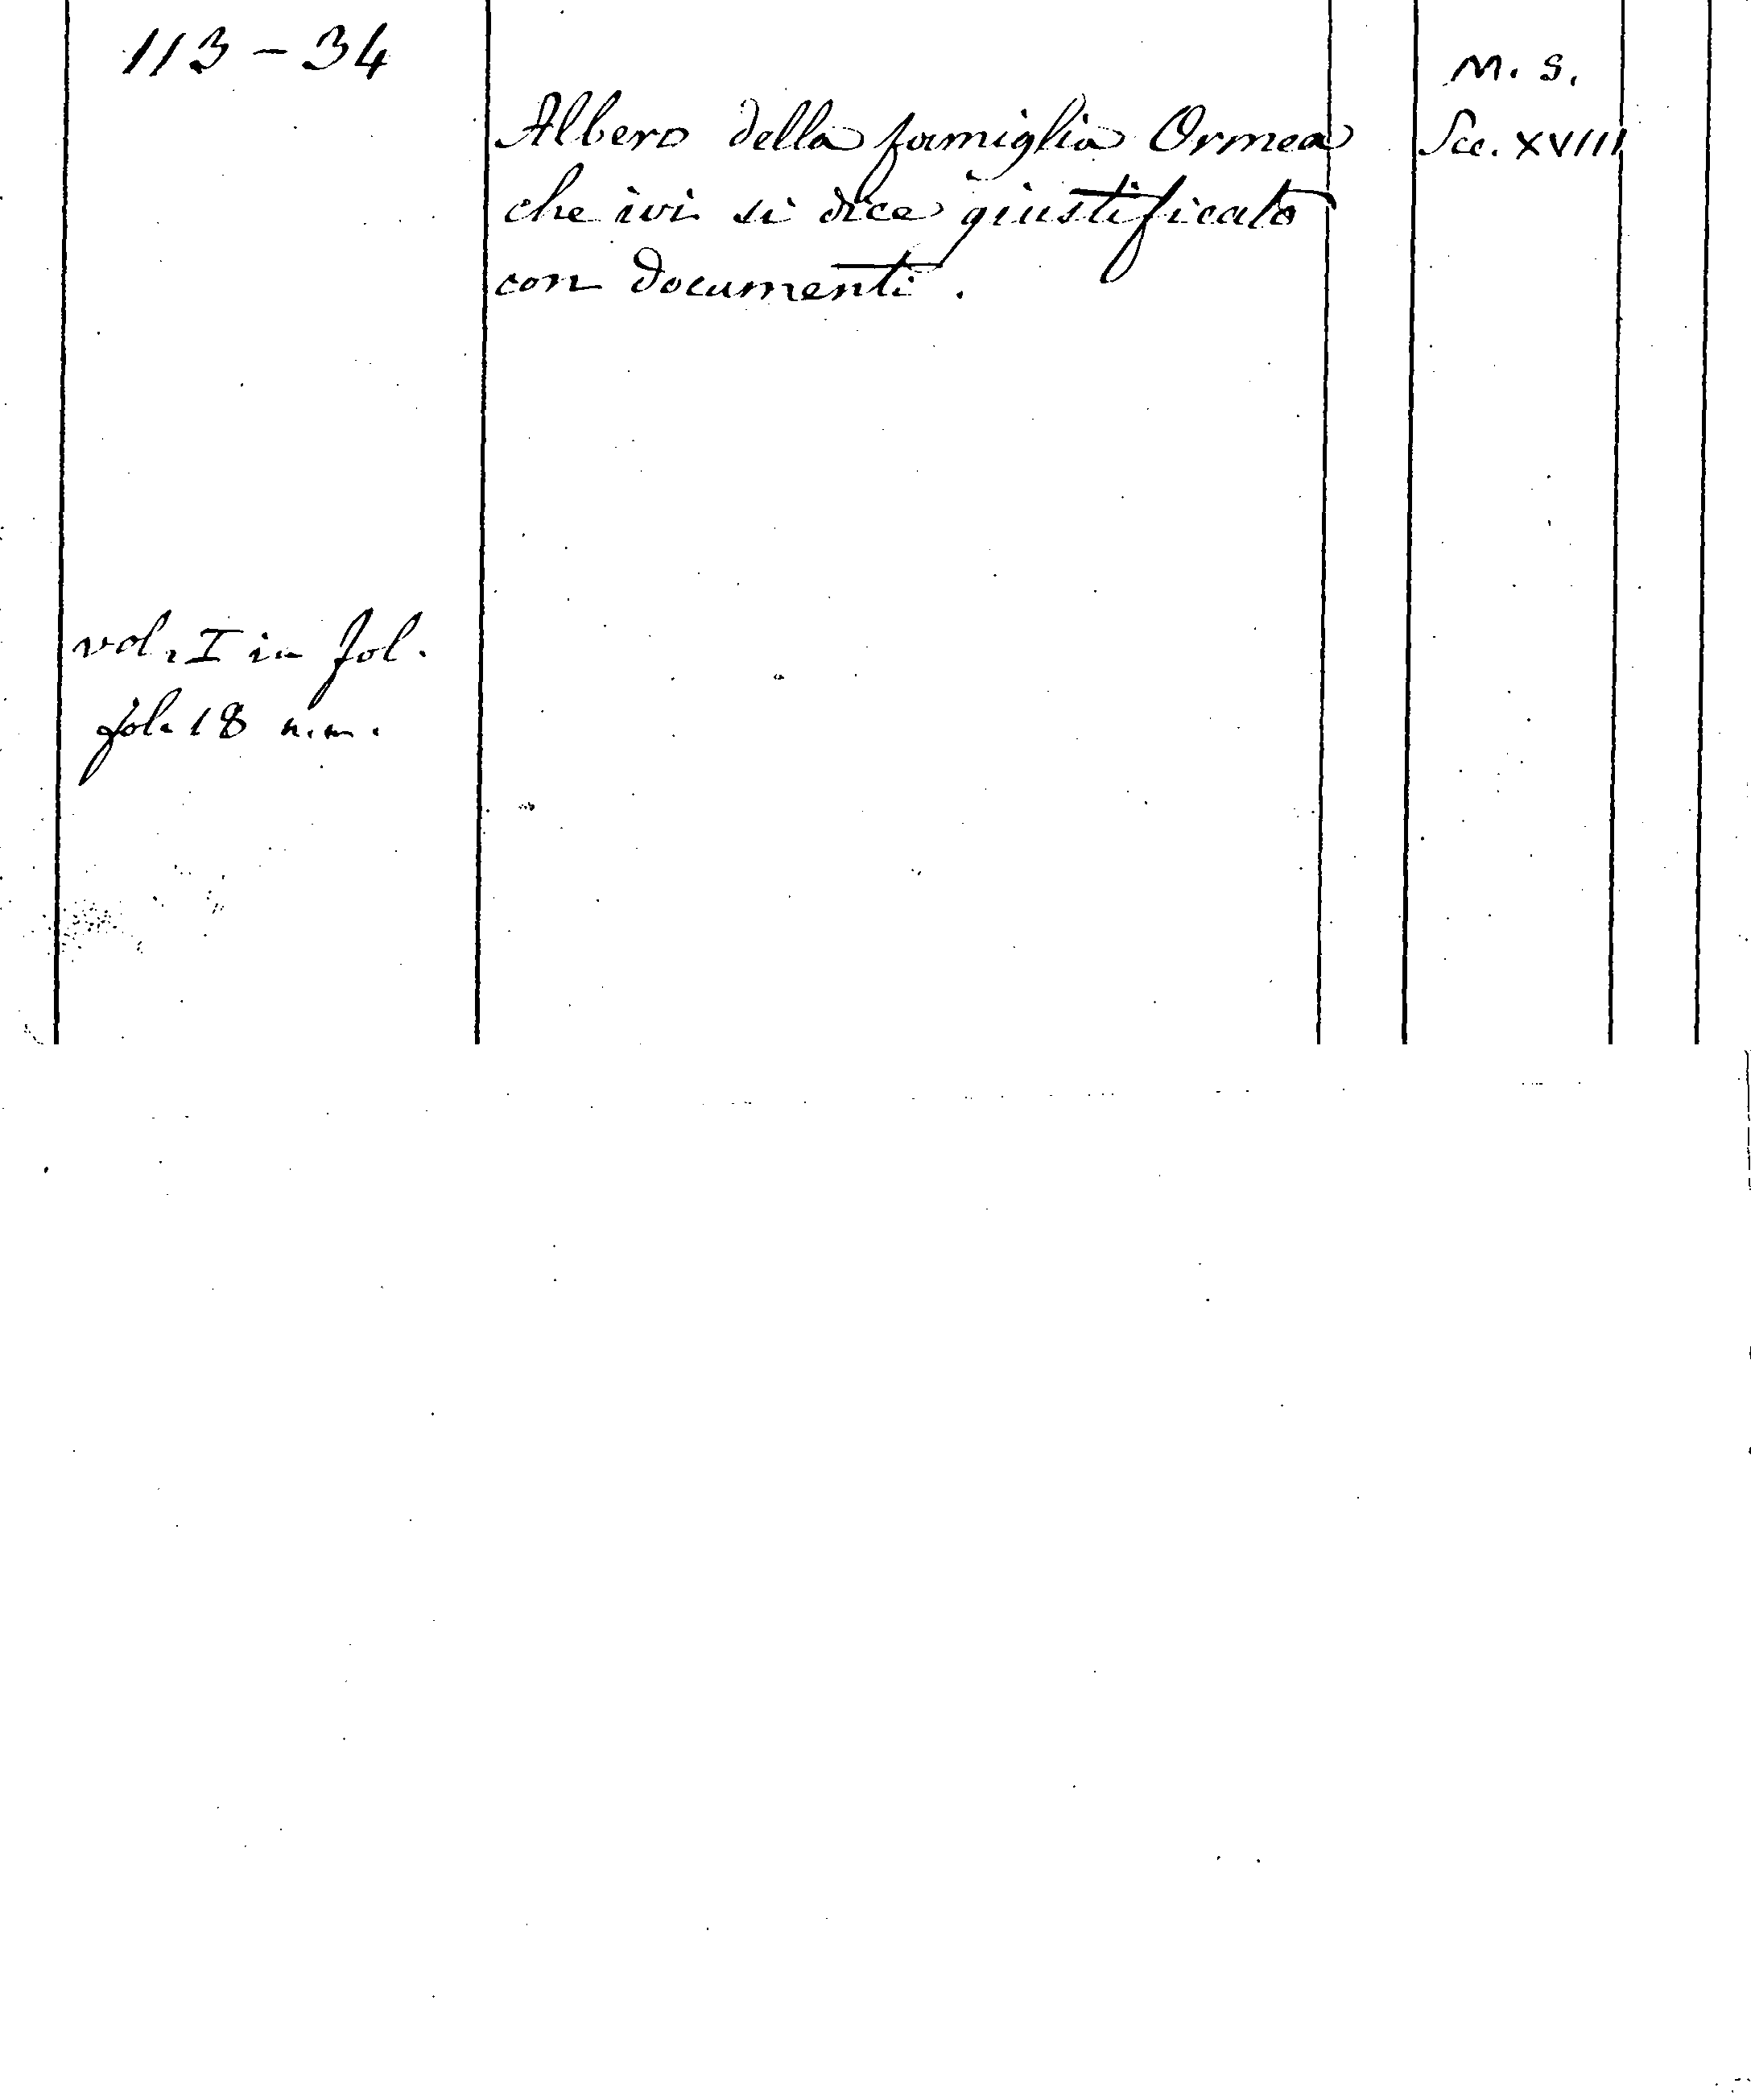 113 - 34
Albero della famiglia Ormea
che ivi si dice giustificato
con documenti.
M. S.
Sec. XVIII
vol. I in fol.
fol. 18 n.n.